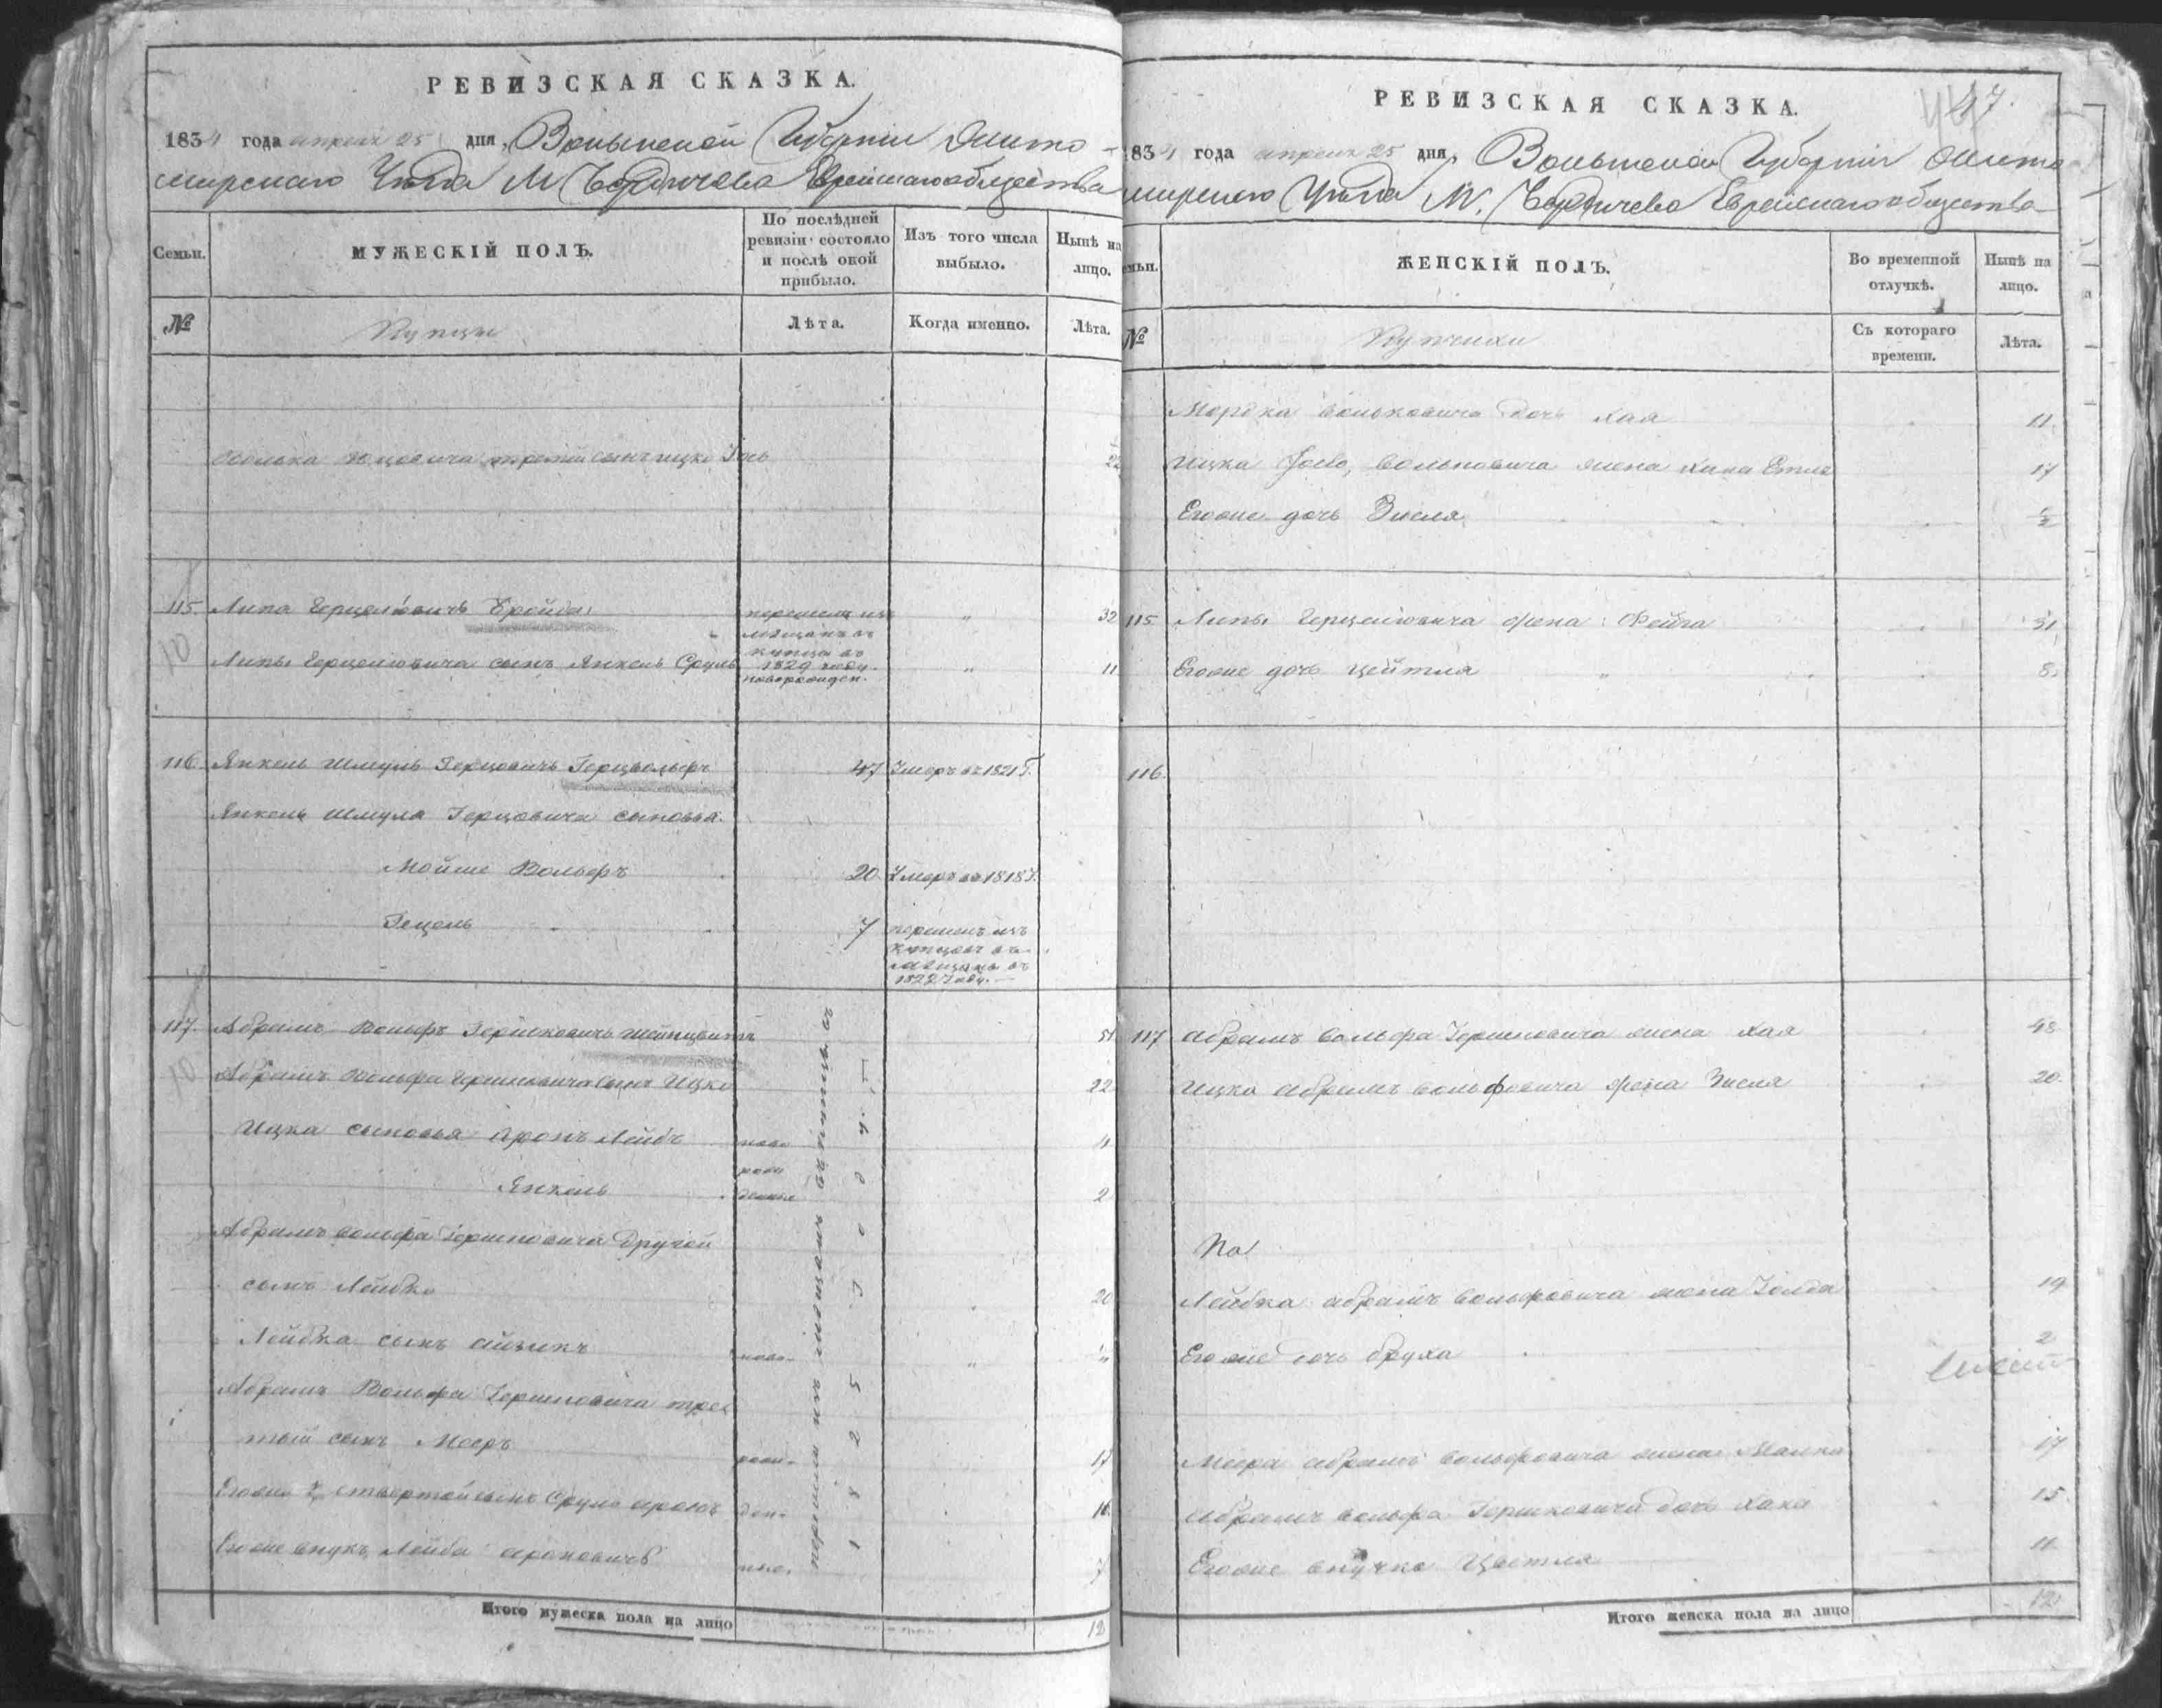 РЕВИЗСКАЯ СКАЗКА.
1834 года апреля 25 дня, Волынской Губернiи Жито-
мирскаго Уѣзда М Бердичева Еврейскаго общества
Семьи.
МУЖЕСКIЙ ПОЛЪ.
По послѣдней ревизiи состояло и послѣ оной прибыло.
Изъ того числа выбыло.
Нынѣ на лицо.
№
Купцы
Лѣта.
Когда именно.
Лѣта.
третiй сынъ Ицко Iось 22
115 Липа Герцелiовичъ Бройда перешелъ изъ мещанъ въ купцы въ 1829 году. „ 32
Липы Герцелiовича сынъ Янкель Сруль новорожден. „ 11
116 Янкель Шмуль Герцовичъ Герцвольфъ 47 Умеръ въ 1821 Г.
Янкель Шмуля Герцовича сыновья.
Мойше Вольфъ 20 Умеръ въ 1818 Г.
Гецель 7 перешелъ изъ купцовъ въ мещаны въ 1822 Году.
117. Абрамъ Вольфъ Гершковичъ 51
Абрамъ Вольфа Гершковича сынъ Ицко 22
Ицка сыновья Аронъ Лейбъ ново 4
рож
Янкель денные 2
Абрамъ Вольфа Гершковича другой
сынъ Лейбко 20
Лейбка сынъ Айзикъ ново- „
Абрамъ Вольфа Гершковича тре
тый сынъ Мееръ рож- 17
Егоже четвертой сынъ Сруль ден- 16
Егоже внукъ Лейба Ароновичъ ные. 7
перешли изъ мещанъ въ купцы въ
1825 Году.
Итого мужеска пола на лицо 12
РЕВИЗСКАЯ СКАЗКА.
47.
1834 года апреля 25 дня, Волынской Губернiи Жито-
мирскаго Уѣзда М. Бердичева Еврейскаго общества
Семьи.
ЖЕНСКIЙ ПОЛЪ.
Во временной отлучкѣ.
Нынѣ на лицо.
№
Купчихи
Съ котораго времени.
Лѣта.
Мордка Вольковича дочь Хая 11.
Ицка Iосio, Вольковича жена Хана Етля 17
Егоже дочь Зисля ½
115 Липы Герцелiовича жена Фейга 31
Егоже дочь Цейтля „ 8.
116.
117 Абрамъ Вольфа Гершковича жена Хая 48
Ицка Абрамъ Вольфовича жена Зисля 20.
No
Лейбка Абрамъ Вольфовича жена Голда 19
Егоже дочь Бруха 2
Меера Абрамъ Вольфовича жена Малка 17
Абрамъ Вольфа Гершковича дочь Хана 15.
Егоже внучка Цветля 11
Итого женска пола на лицо 12